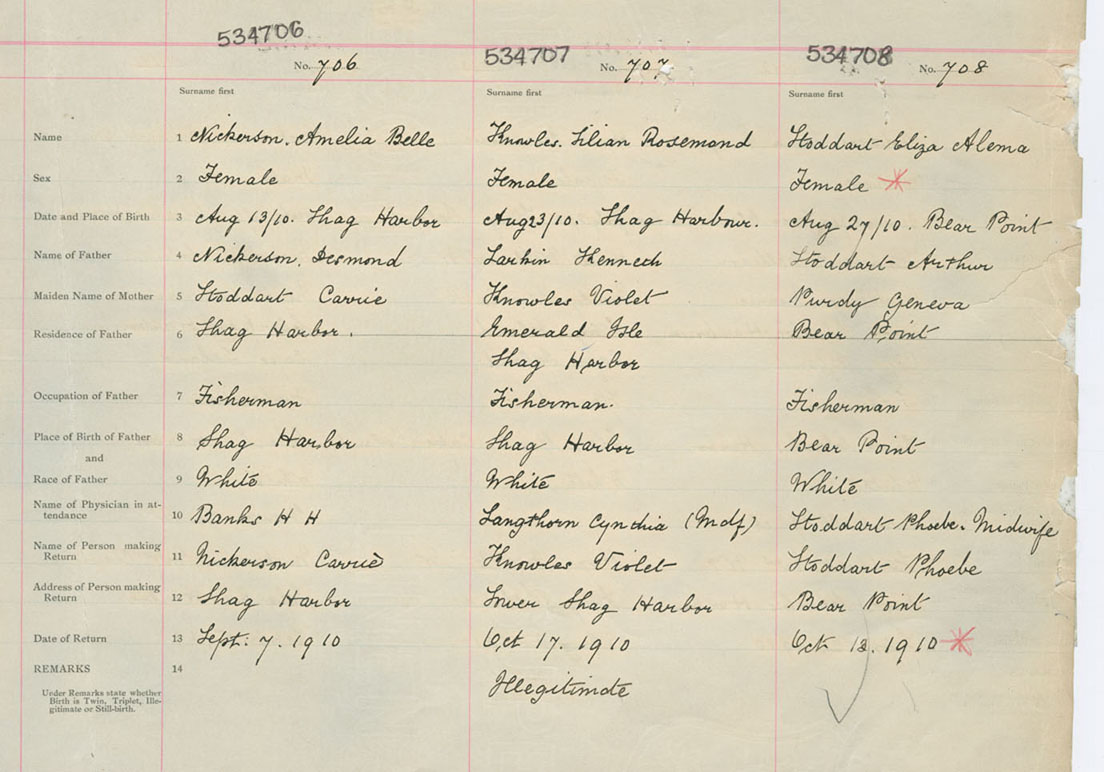 534706 534707 534708
No. 706 No. 707 No. 708
Surname first Surname first Surname first
Name 1 Nickerson. Amelia Belle Knowles. Lilian Rosemond Stoddart Eliza Alema
Sex 2 Female Female Female
Date and Place of Birth 3 Aug 13/10. Shag Harbor Aug 23/10. Shag Harbour. Aug 27/10. Bear Point
Name of Father 4 Nickerson. Desmond Larkin Kenneth Stoddart Arthur
Maiden Name of Mother 5 Stoddart Carrie Knowles Violet Purdy Geneva
Residence of Father 6 Shag Harbor. Emerald Isle Bear Point
Shag Harbor
Occupation of Father 7 Fisherman Fisherman. Fisherman
Place of Birth of Father 8 Shag Harbor Shag Harbor Bear Point
and
Race of Father 9 White White White
Name of Physician in at-
tendance 10 Banks H H Langthorn Cynthia (Mdf) Stoddart Phoebe. Midwife
Name of Person making
Return 11 Nickerson Carrie Knowles Violet Stoddart Phoebe
Address of Person making
Return 12 Shag Harbor Lower Shag Harbor Bear Point
Date of Return 13 Sept. 7. 1910 Oct 17. 1910 Oct 12. 1910
REMARKS 14
Under Remarks state whether
Birth is Twin, Triplet, Ille-
gitimate or Still-birth.
Illegitimate